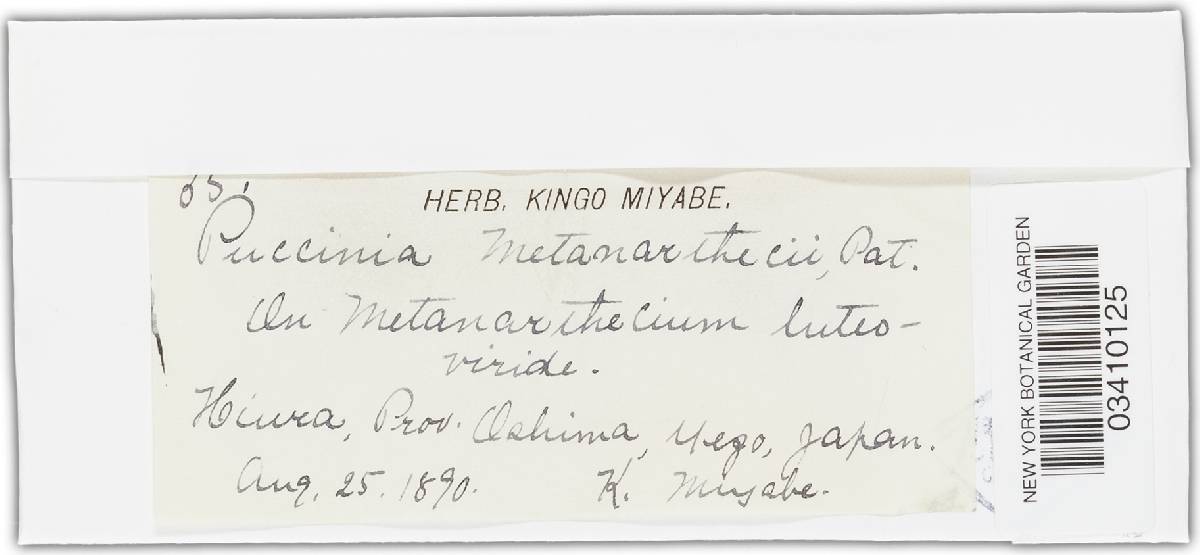 HERB. KINGO MIYABE.
Puccinia Metanarthecii, Pat.
On Metanarthecium luteo-
viride.
Hiura, Prov. Oshima, Yezo, Japan.
Aug. 25. 1890. K. Miyabe.
NEW YORK BOTANICAL GARDEN
03410125